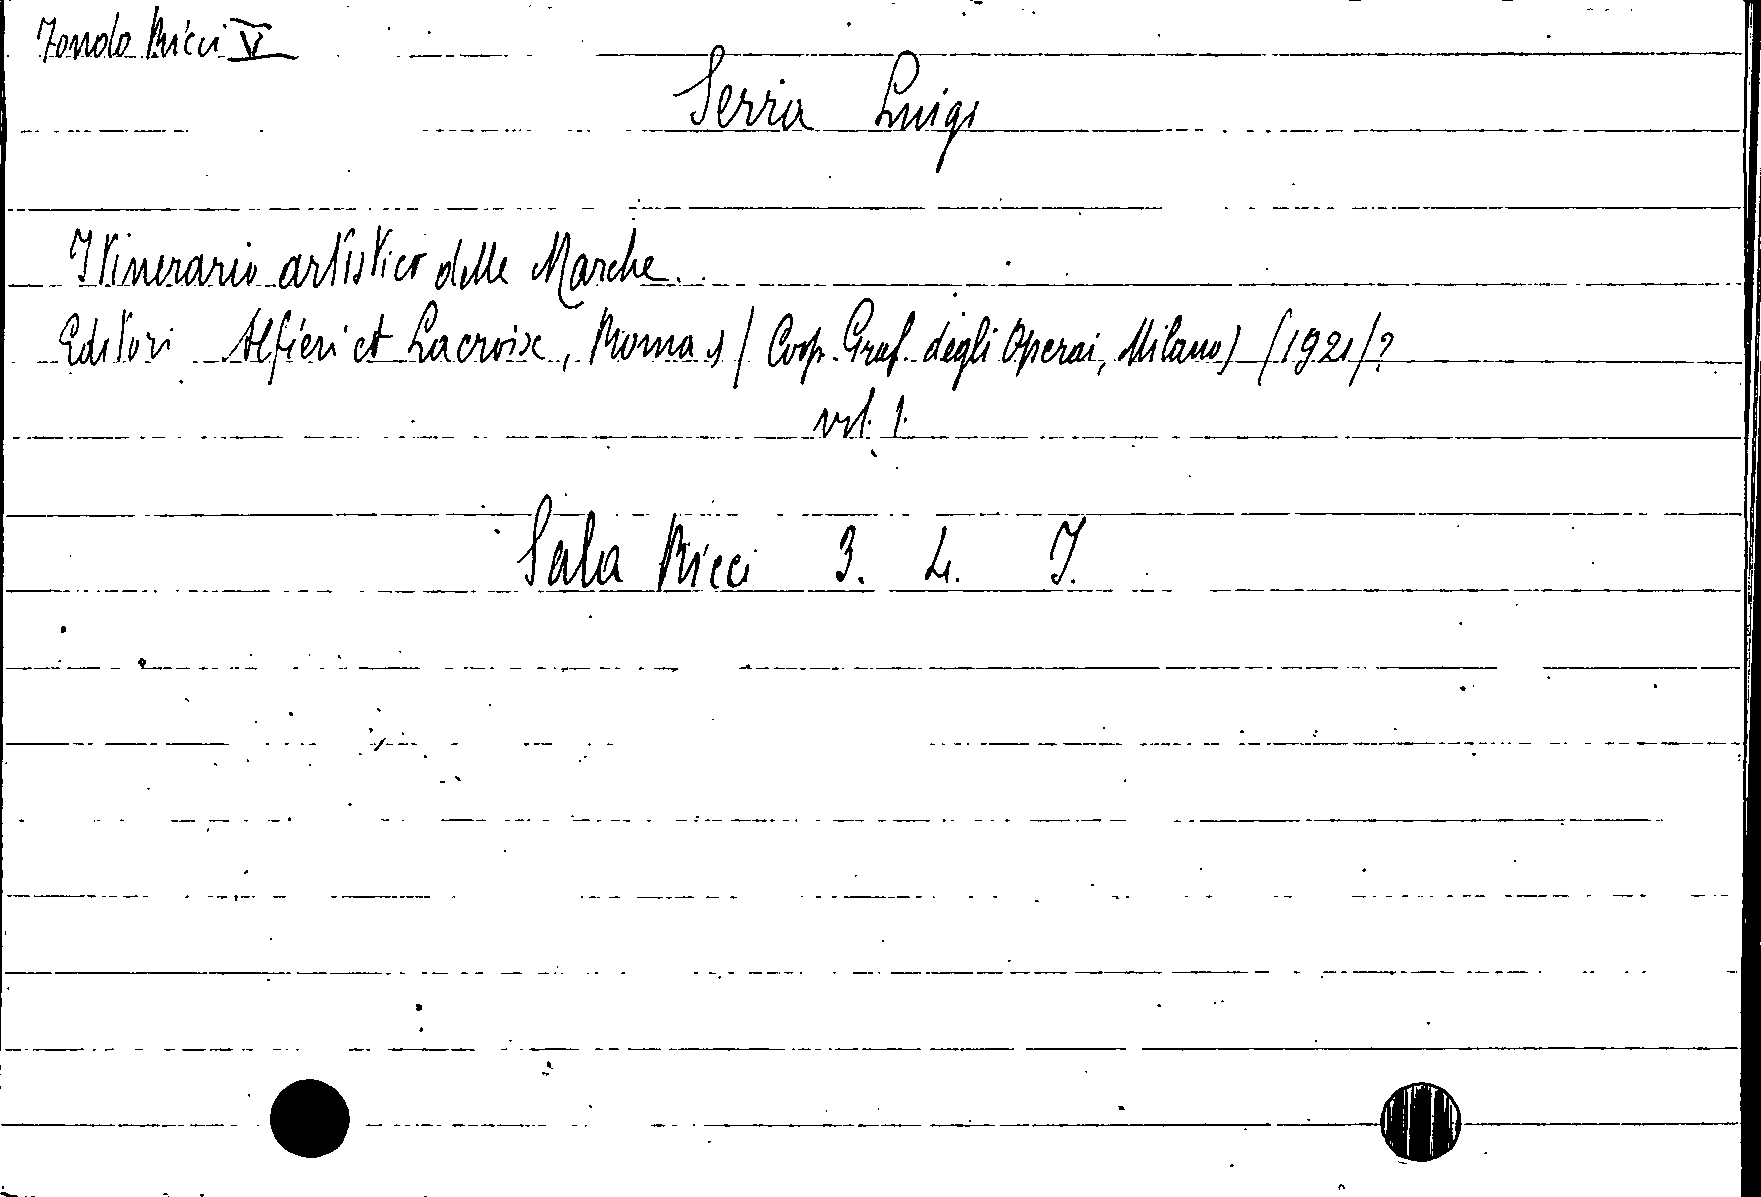 Fondo Ricci V
Serra Luigi
Itinerario artistico delle Marche.
Editori Alfieri et Lacroix, Roma, s/ (Coop. Graf. degli Operai, Milano) (1921)?
vol. 1.
Sala Ricci 3. 4. I.